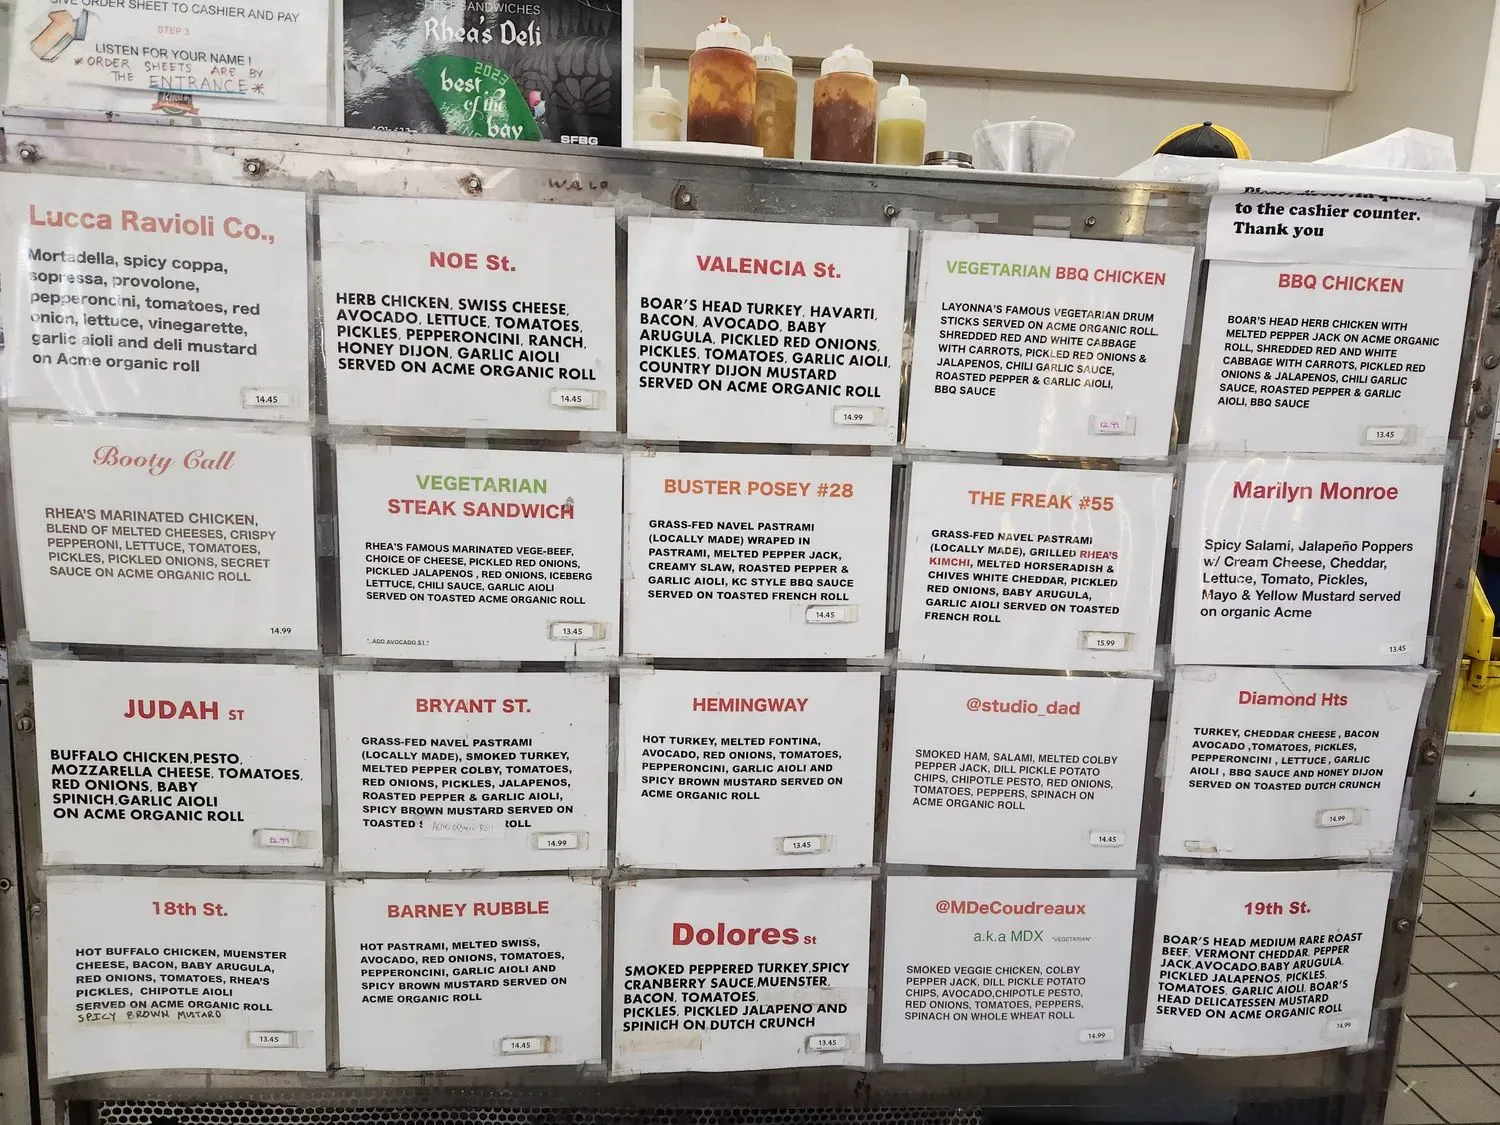 GIVE ORDER SHEET TO CASHIER AND PAY
STEP 3
LISTEN FOR YOUR NAME!
*ORDER SHEETS ARE BY
THE ENTRANCE*
BEST SANDWICHES
Rhea's Deli
2023
best
of the
bay
SFBG
to the cashier counter.
Thank you
Lucca Ravioli Co.,
Mortadella, spicy coppa,
sopressa, provolone,
pepperoncini, tomatoes, red
onion, lettuce, vinegarette,
garlic aioli and deli mustard
on Acme organic roll
14.45
NOE St.
HERB CHICKEN, SWISS CHEESE,
AVOCADO, LETTUCE, TOMATOES,
PICKLES, PEPPERONCINI, RANCH,
HONEY DIJON, GARLIC AIOLI
SERVED ON ACME ORGANIC ROLL
14.45
VALENCIA St.
BOAR'S HEAD TURKEY, HAVARTI,
BACON, AVOCADO, BABY
ARUGULA, PICKLED RED ONIONS,
PICKLES, TOMATOES, GARLIC AIOLI,
COUNTRY DIJON MUSTARD
SERVED ON ACME ORGANIC ROLL
14.99
VEGETARIAN BBQ CHICKEN
LAYONNA'S FAMOUS VEGETARIAN DRUM
STICKS SERVED ON ACME ORGANIC ROLL.
SHREDDED RED AND WHITE CABBAGE
WITH CARROTS, PICKLED RED ONIONS &
JALAPENOS, CHILI GARLIC SAUCE,
ROASTED PEPPER & GARLIC AIOLI,
BBQ SAUCE
12.99
BBQ CHICKEN
BOAR'S HEAD HERB CHICKEN WITH
MELTED PEPPER JACK ON ACME ORGANIC
ROLL, SHREDDED RED AND WHITE
CABBAGE WITH CARROTS, PICKLED RED
ONIONS & JALAPENOS, CHILI GARLIC
SAUCE, ROASTED PEPPER & GARLIC
AIOLI, BBQ SAUCE
13.45
Booty Call
RHEA'S MARINATED CHICKEN,
BLEND OF MELTED CHEESES, CRISPY
PEPPERONI, LETTUCE, TOMATOES,
PICKLES, PICKLED ONIONS, SECRET
SAUCE ON ACME ORGANIC ROLL
14.99
VEGETARIAN
STEAK SANDWICH
RHEA'S FAMOUS MARINATED VEGE-BEEF,
CHOICE OF CHEESE, PICKLED RED ONIONS,
PICKLED JALAPENOS , RED ONIONS, ICEBERG
LETTUCE, CHILI SAUCE, GARLIC AIOLI
SERVED ON TOASTED ACME ORGANIC ROLL
* ADD AVOCADO $1 *
13.45
BUSTER POSEY #28
GRASS-FED NAVEL PASTRAMI
(LOCALLY MADE) WRAPED IN
PASTRAMI, MELTED PEPPER JACK,
CREAMY SLAW, ROASTED PEPPER &
GARLIC AIOLI, KC STYLE BBQ SAUCE
SERVED ON TOASTED FRENCH ROLL
14.45
THE FREAK #55
GRASS-FED NAVEL PASTRAMI
(LOCALLY MADE), GRILLED RHEA'S
KIMCHI, MELTED HORSERADISH &
CHIVES WHITE CHEDDAR, PICKLED
RED ONIONS, BABY ARUGULA,
GARLIC AIOLI SERVED ON TOASTED
FRENCH ROLL
15.99
Marilyn Monroe
Spicy Salami, Jalapeño Poppers
w/ Cream Cheese, Cheddar,
Lettuce, Tomato, Pickles,
Mayo & Yellow Mustard served
on organic Acme
13.45
JUDAH ST
BUFFALO CHICKEN,PESTO,
MOZZARELLA CHEESE, TOMATOES,
RED ONIONS, BABY
SPINICH,GARLIC AIOLI
ON ACME ORGANIC ROLL
12.99
BRYANT ST.
GRASS-FED NAVEL PASTRAMI
(LOCALLY MADE), SMOKED TURKEY,
MELTED PEPPER COLBY, TOMATOES,
RED ONIONS, PICKLES, JALAPENOS,
ROASTED PEPPER & GARLIC AIOLI,
SPICY BROWN MUSTARD SERVED ON
TOASTED ACME ORGANIC ROLL ROLL
14.99
HEMINGWAY
HOT TURKEY, MELTED FONTINA,
AVOCADO, RED ONIONS, TOMATOES,
PEPPERONCINI, GARLIC AIOLI AND
SPICY BROWN MUSTARD SERVED ON
ACME ORGANIC ROLL
13.45
@studio_dad
SMOKED HAM, SALAMI, MELTED COLBY
PEPPER JACK, DILL PICKLE POTATO
CHIPS, CHIPOTLE PESTO, RED ONIONS,
TOMATOES, PEPPERS, SPINACH ON
ACME ORGANIC ROLL
14.45
Diamond Hts
TURKEY, CHEDDAR CHEESE , BACON
AVOCADO ,TOMATOES, PICKLES,
PEPPERONCINI , LETTUCE , GARLIC
AIOLI , BBQ SAUCE AND HONEY DIJON
SERVED ON TOASTED DUTCH CRUNCH
14.99
18th St.
HOT BUFFALO CHICKEN, MUENSTER
CHEESE, BACON, BABY ARUGULA,
RED ONIONS, TOMATOES, RHEA'S
PICKLES, CHIPOTLE AIOLI
SERVED ON ACME ORGANIC ROLL
SPICY BROWN MUSTARD
13.45
BARNEY RUBBLE
HOT PASTRAMI, MELTED SWISS,
AVOCADO, RED ONIONS, TOMATOES,
PEPPERONCINI, GARLIC AIOLI AND
SPICY BROWN MUSTARD SERVED ON
ACME ORGANIC ROLL
14.45
Dolores St
SMOKED PEPPERED TURKEY,SPICY
CRANBERRY SAUCE,MUENSTER,
BACON, TOMATOES,
PICKLES, PICKLED JALAPENO AND
SPINICH ON DUTCH CRUNCH
13.45
@MDeCoudreaux
a.k.a MDX "VEGETARIAN"
SMOKED VEGGIE CHICKEN, COLBY
PEPPER JACK, DILL PICKLE POTATO
CHIPS, AVOCADO,CHIPOTLE PESTO,
RED ONIONS, TOMATOES, PEPPERS,
SPINACH ON WHOLE WHEAT ROLL
14.99
19th St.
BOAR'S HEAD MEDIUM RARE ROAST
BEEF, VERMONT CHEDDAR, PEPPER
JACK,AVOCADO,BABY ARUGULA,
PICKLED JALAPENOS, PICKLES,
TOMATOES, GARLIC AIOLI, BOAR'S
HEAD DELICATESSEN MUSTARD
SERVED ON ACME ORGANIC ROLL
14.99